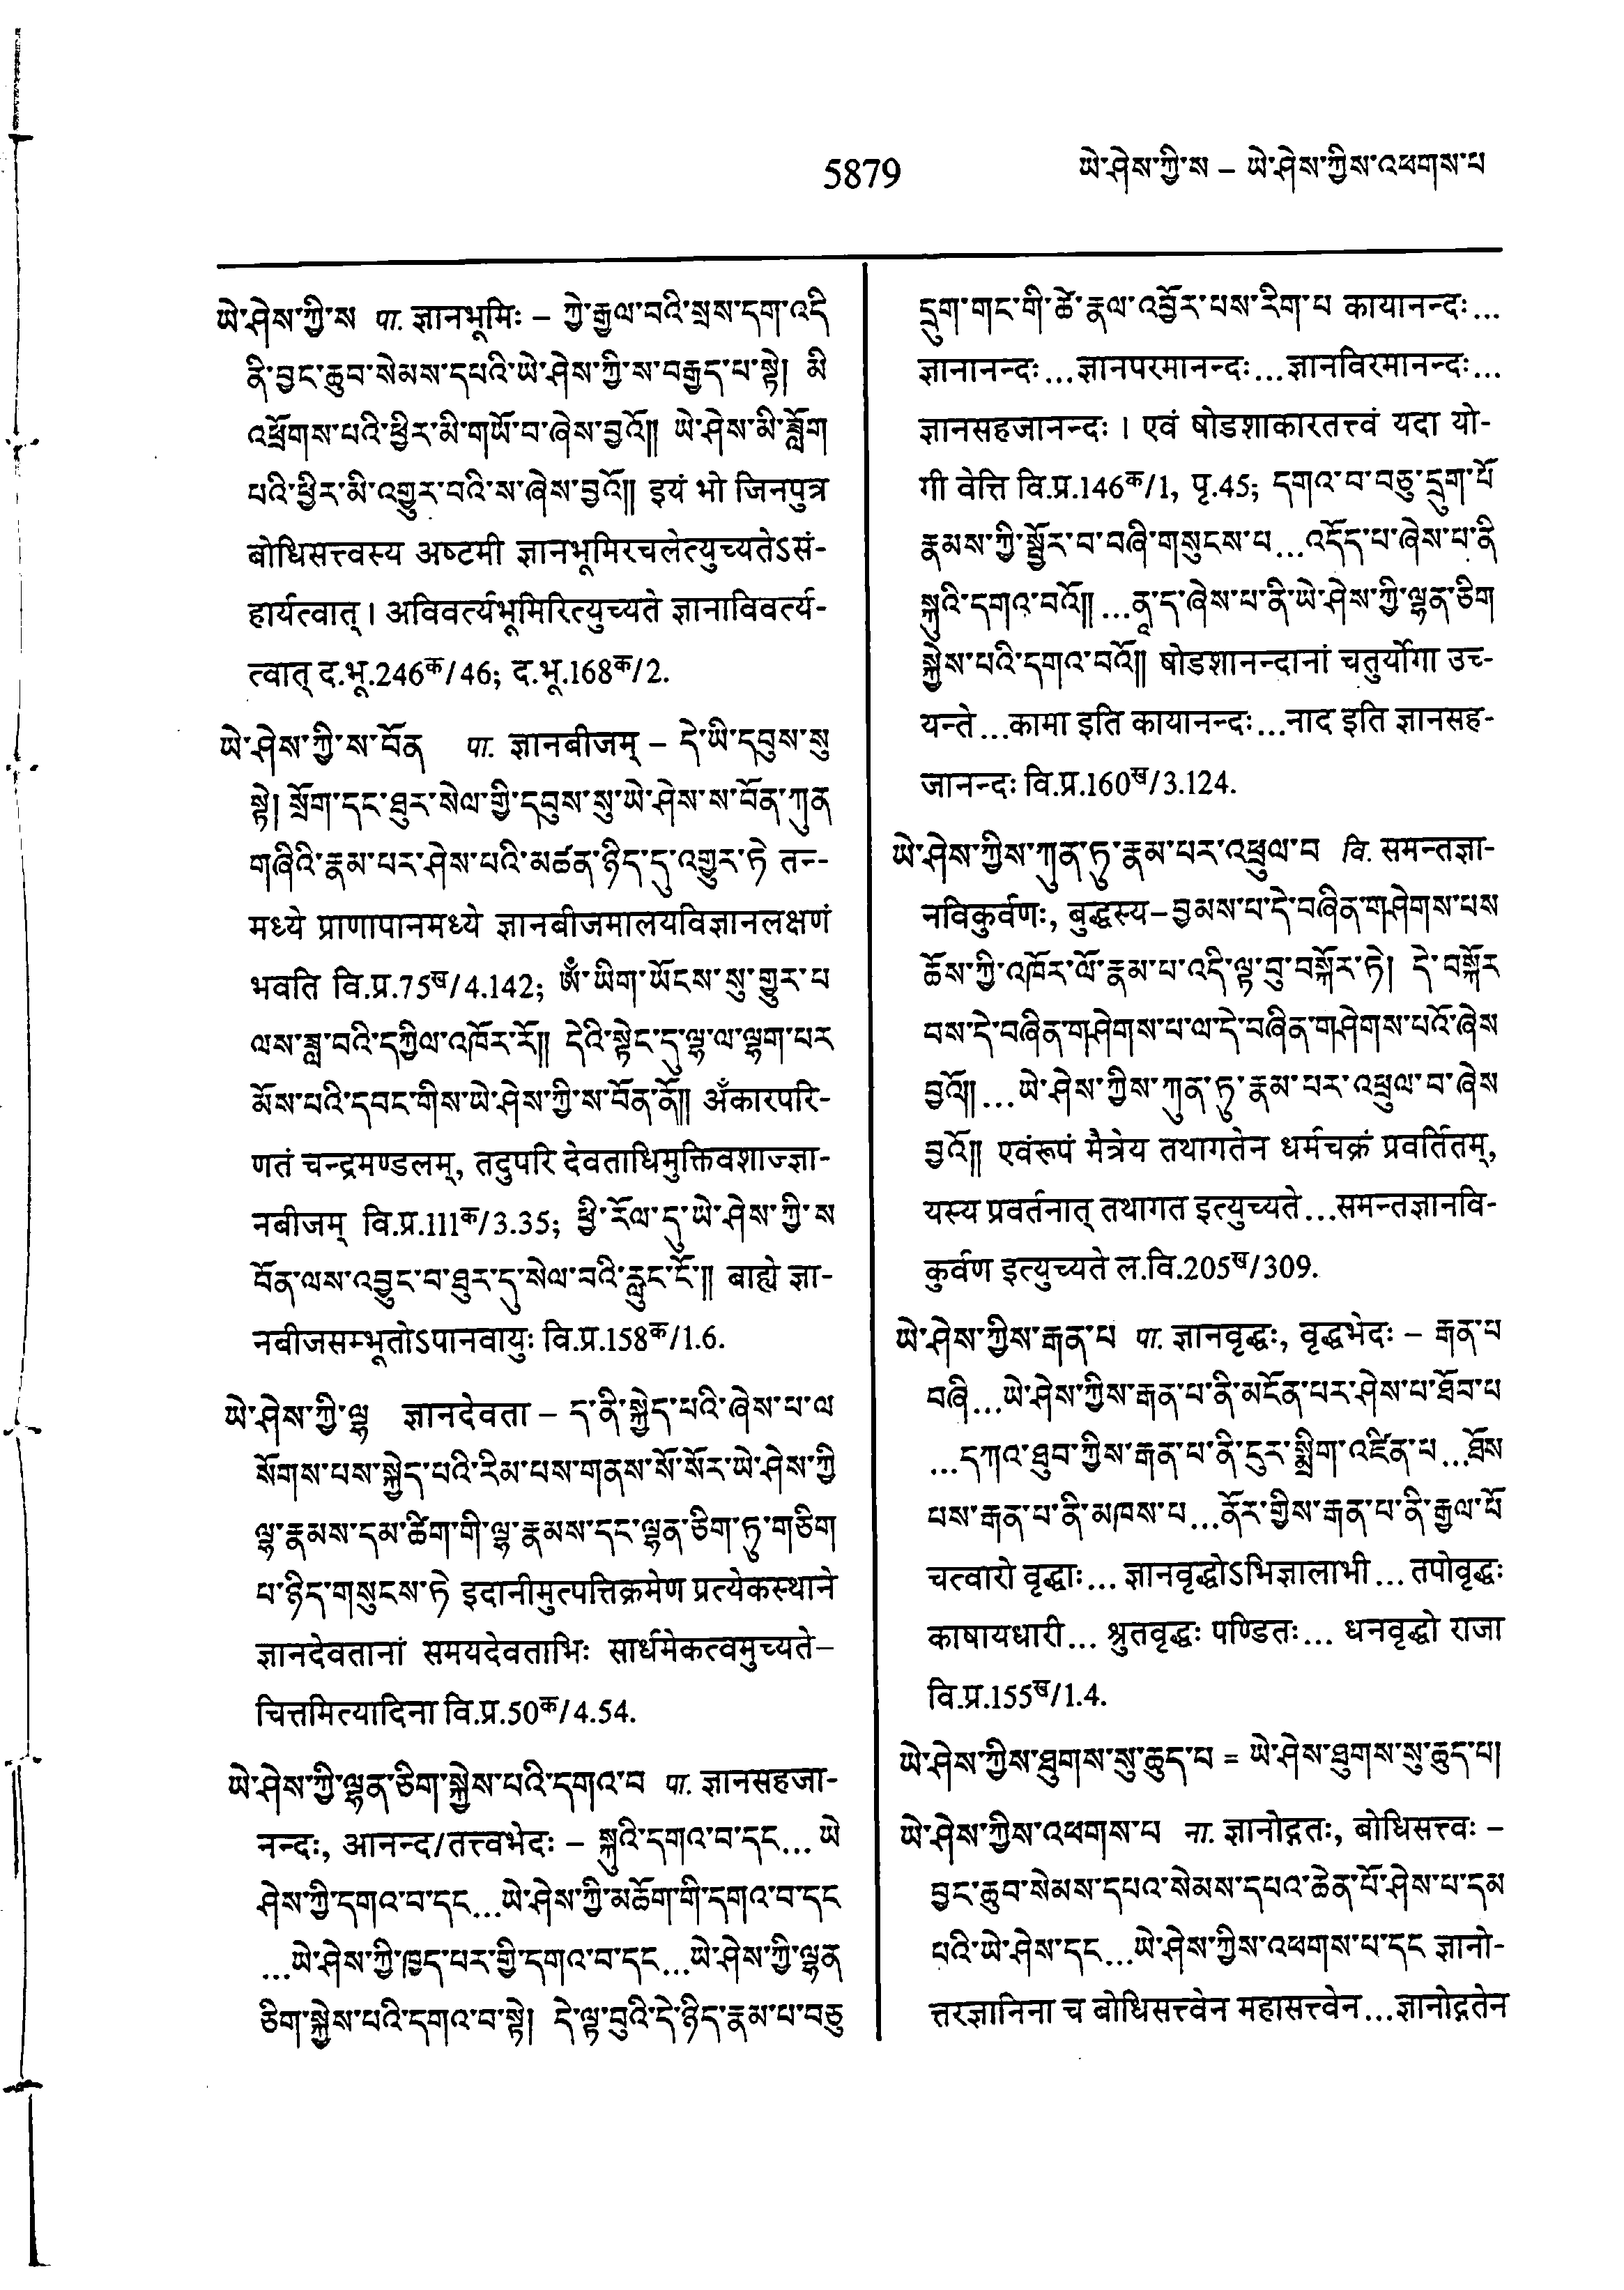 5879
ཡེ་ཤེས་ཀྱི་ས – ཡེ་ཤེས་ཀྱིས་འཕགས་པ
ཡེ་ཤེས་ཀྱི་ས पा. ज्ञानभूमिः – ཀྱེ་རྒྱལ་བའི་སྲས་དག་འདི
ནི་བྱང་ཆུབ་སེམས་དཔའི་ཡེ་ཤེས་ཀྱི་ས་བརྒྱད་པ་སྟེ། མི
འཕྲོགས་པའི་ཕྱིར་མི་གཡོ་བ་ཞེས་བྱའོ།། ཡེ་ཤེས་མི་ཟློག
པའི་ཕྱིར་མི་འགྱུར་བའི་ས་ཞེས་བྱའོ།། इयं भो जिनपुत्र
बोधिसत्त्वस्य अष्टमी ज्ञानभूमिरचलेत्युच्यतेऽसं-
हार्यत्वात् । अविवर्त्यभूमिरित्युच्यते ज्ञानाविवर्त्य-
त्वात् द.भू.246क/46; द.भू.168क/2.
ཡེ་ཤེས་ཀྱི་ས་བོན पा. ज्ञानबीजम् – དེ་ཡི་དབུས་སུ
སྟེ། སྲོག་དང་ཐུར་སེལ་གྱི་དབུས་སུ་ཡེ་ཤེས་ས་བོན་ཀུན
གཞིའི་རྣམ་པར་ཤེས་པའི་མཚན་ཉིད་དུ་འགྱུར་ཏེ तन्-
मध्ये प्राणापानमध्ये ज्ञानबीजमालयविज्ञानलक्षणं
भवति वि.प्र.75ख/4.142; ཨཾ་ཡིག་ཡོངས་སུ་གྱུར་པ
ལས་ཟླ་བའི་དཀྱིལ་འཁོར་རོ།། དེའི་སྟེང་དུ་ལྷ་ལ་ལྷག་པར
མོས་པའི་དབང་གིས་ཡེ་ཤེས་ཀྱི་ས་བོན་ནོ།། अँकारपरि-
णतं चन्द्रमण्डलम्, तदुपरि देवताधिमुक्तिवशाज्ज्ञा-
नबीजम् वि.प्र.111क/3.35; ཕྱི་རོལ་དུ་ཡེ་ཤེས་ཀྱི་ས
བོན་ལས་འབྱུང་བ་ཐུར་དུ་སེལ་བའི་རླུང་ངོ་།། बाह्ये ज्ञा-
नबीजसम्भूतोऽपानवायुः वि.प्र.158क/1.6.
ཡེ་ཤེས་ཀྱི་ལྷ ज्ञानदेवता – ད་ནི་སྐྱེད་པའི་ཞེས་པ་ལ
སོགས་པས་སྐྱེད་པའི་རིམ་པས་གནས་སོ་སོར་ཡེ་ཤེས་ཀྱི
ལྷ་རྣམས་དམ་ཚིག་གི་ལྷ་རྣམས་དང་ལྷན་ཅིག་ཏུ་གཅིག
པ་ཉིད་གསུངས་ཏེ इदानीमुत्पत्तिक्रमेण प्रत्येकस्थाने
ज्ञानदेवतानां समयदेवताभिः सार्धमेकत्वमुच्यते–
चित्तमित्यादिना वि.प्र.50क/4.54.
ཡེ་ཤེས་ཀྱི་ལྷན་ཅིག་སྐྱེས་པའི་དགའ་བ पा. ज्ञानसहजा-
नन्दः, आनन्द/तत्त्वभेदः – སྐུའི་དགའ་བ་དང... ཡེ
ཤེས་ཀྱི་དགའ་བ་དང...ཡེ་ཤེས་ཀྱི་མཆོག་གི་དགའ་བ་དང
...ཡེ་ཤེས་ཀྱི་ཁྱད་པར་གྱི་དགའ་བ་དང...ཡེ་ཤེས་ཀྱི་ལྷན
ཅིག་སྐྱེས་པའི་དགའ་བ་སྟེ། དེ་ལྟ་བུའི་དེ་ཉིད་རྣམ་པ་བཅུ
དྲུག་གང་གི་ཚེ་རྣལ་འབྱོར་པས་རིག་པ कायानन्दः...
ज्ञानानन्दः...ज्ञानपरमानन्दः...ज्ञानविरमानन्दः...
ज्ञानसहजानन्दः । एवं षोडशाकारतत्त्वं यदा यो-
गी वेत्ति वि.प्र.146क/1, पृ.45; དགའ་བ་བཅུ་དྲུག་པོ
རྣམས་ཀྱི་སྦྱོར་བ་བཞི་གསུངས་པ...འདོད་པ་ཞེས་པ་ནི
སྐུའི་དགའ་བའོ།།...ནཱ་ད་ཞེས་པ་ནི་ཡེ་ཤེས་ཀྱི་ལྷན་ཅིག
སྐྱེས་པའི་དགའ་བའོ།། षोडशानन्दानां चतुर्योगा उच्-
यन्ते...कामा इति कायानन्दः...नाद इति ज्ञानसह-
जानन्दः वि.प्र.160ख/3.124.
ཡེ་ཤེས་ཀྱིས་ཀུན་ཏུ་རྣམ་པར་འཕྲུལ་བ वि. समन्तज्ञा-
नविकुर्वणः, बुद्धस्य– བྱམས་པ་དེ་བཞིན་གཤེགས་པས
ཆོས་ཀྱི་འཁོར་ལོ་རྣམ་པ་འདི་ལྟ་བུ་བསྐོར་ཏེ། དེ་བསྐོར
བས་དེ་བཞིན་གཤེགས་པ་ལ་དེ་བཞིན་གཤེགས་པའོ་ཞེས
བྱའོ།།...ཡེ་ཤེས་ཀྱིས་ཀུན་ཏུ་རྣམ་པར་འཕྲུལ་བ་ཞེས
བྱའོ།། एवंरूपं मैत्रेय तथागतेन धर्मचक्रं प्रवर्तितम्,
यस्य प्रवर्तनात् तथागत इत्युच्यते...समन्तज्ञानवि-
कुर्वण इत्युच्यते ल.वि.205ख/309.
ཡེ་ཤེས་ཀྱིས་རྒན་པ पा. ज्ञानवृद्धः, वृद्धभेदः – རྒན་པ
བཞི...ཡེ་ཤེས་ཀྱིས་རྒན་པ་ནི་མངོན་པར་ཤེས་པ་ཐོབ་པ
...དཀའ་ཐུབ་ཀྱིས་རྒན་པ་ནི་ངུར་སྨྲིག་འཛིན་པ...ཐོས
པས་རྒན་པ་ནི་མཁས་པ...ནོར་གྱིས་རྒན་པ་ནི་རྒྱལ་པོ
चत्वारो वृद्धाः... ज्ञानवृद्धोऽभिज्ञालाभी... तपोवृद्धः
काषायधारी... श्रुतवृद्धः पण्डितः... धनवृद्धो राजा
वि.प्र.155ख/1.4.
ཡེ་ཤེས་ཀྱིས་ཐུགས་སུ་ཆུད་པ = ཡེ་ཤེས་ཐུགས་སུ་ཆུད་པ།
ཡེ་ཤེས་ཀྱིས་འཕགས་པ ना. ज्ञानोद्गतः, बोधिसत्त्वः –
བྱང་ཆུབ་སེམས་དཔའ་སེམས་དཔའ་ཆེན་པོ་ཤེས་པ་དམ
པའི་ཡེ་ཤེས་དང...ཡེ་ཤེས་ཀྱིས་འཕགས་པ་དང ज्ञानो-
त्तरज्ञानिना च बोधिसत्त्वेन महासत्त्वेन...ज्ञानोद्गतेन